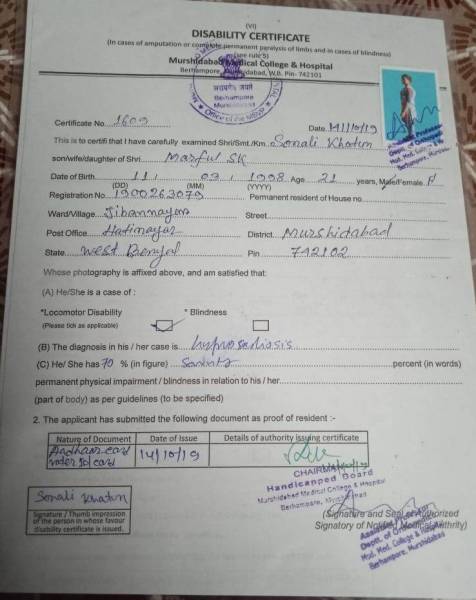 (VI)
DISABILITY CERTIFICATE
(In cases of amputation or complete permanent paralysis of limbs and in cases of blindness)
(see rule 5)
Murshidabad Medical College & Hospital
Berhampore, Murshidabad, W.B. Pin- 742101
सत्यमेव जयते
Berhampore
Murshidabad
Office of the MSVP
Certificate No. 1609 Date 14/10/19
This is to certify that I have carefully examined Shri/Smt./Km. Sonali Khatun
son/wife/daughter of Shri Marful SK
Date of Birth 11 / 03 / 1998 Age 21 years, Male/Female F
(DD) (MM) (YYYY)
Registration No. 1900263079 Permanent resident of House no.
Ward/Village Jibannagar Street
Post Office Hatinagar District Murshidabad
State West Bengal Pin 742102
Whose photography is affixed above, and am satisfied that :
(A) He/She is a case of :
*Locomotor Disability * Blindness
(Please tick as applicable)
(B) The diagnosis in his / her case is
(C) He/ She has 70 % (in figure) percent (in words)
permanent physical impairment / blindness in relation to his / her
(part of body) as per guidelines (to be specified)
2. The applicant has submitted the following document as proof of resident :-
Nature of Document Date of Issue Details of authority issuing certificate
Aadhaar card 14/10/19
voter ID card
CHAIRMAN
Handicapped Board
Murshidabad Medical College & Hospital
Berhampore, Murshidabad
Sonali Khatun
Signature / Thumb impression
of the person in whose favour
disability certificate is issued.
(Signature and Seal of Authorized
Signatory of Notified Medical Authrity)
Mod. Med. College & Hospital
Berhampore, Murshidabad